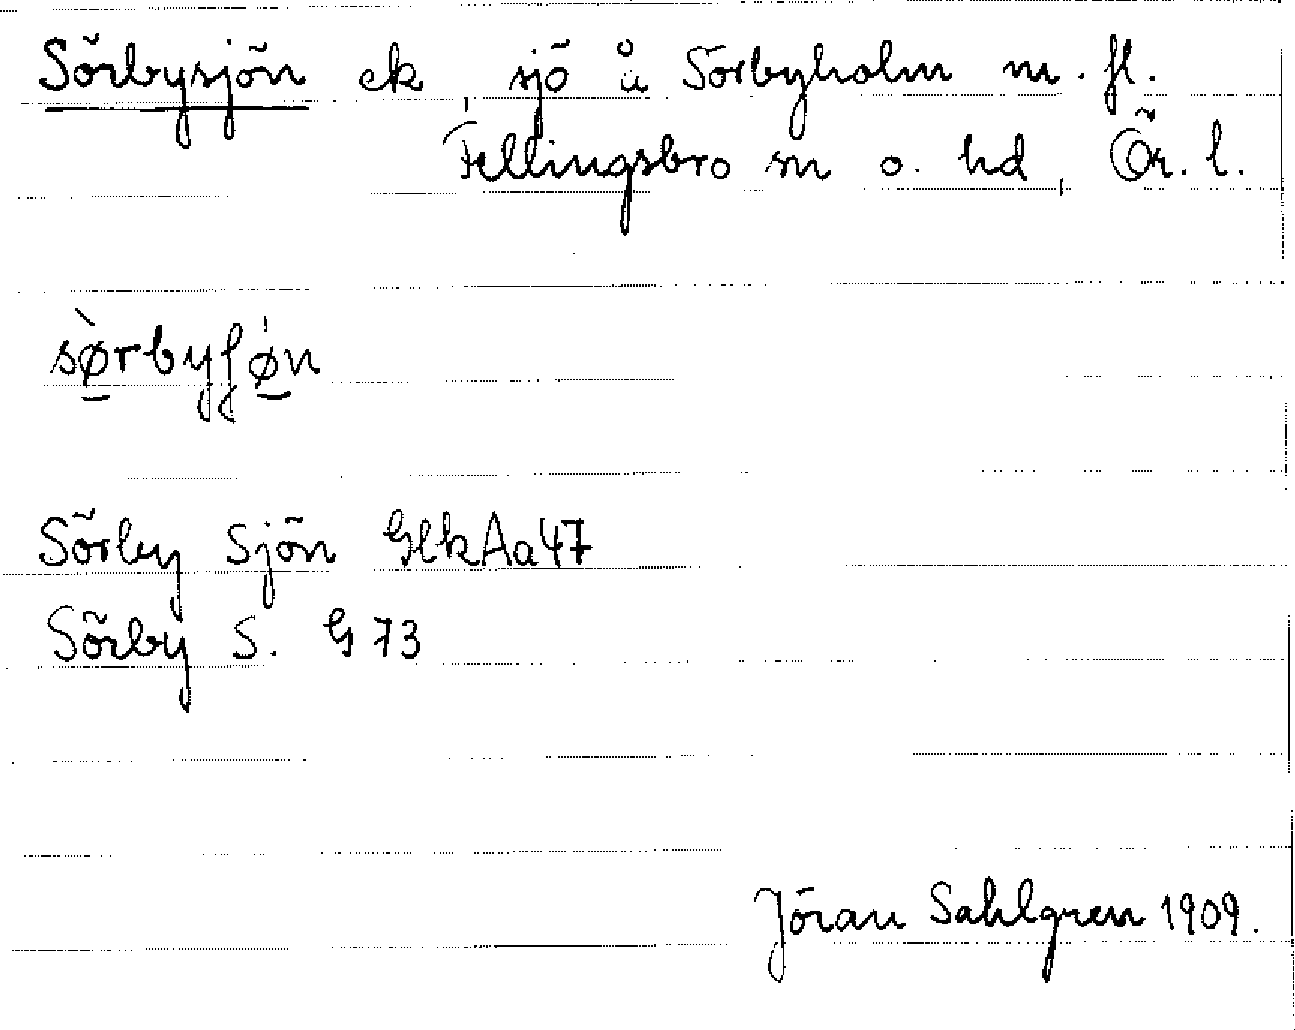 Sörbysjön ek, sjö å Sörbyholm m. fl.
Fellingsbro sn o. hd, Ör. l.
sø̀rbyʃø̍n
Sörby Sjön GlkAa47
Sörby S. G 73
Jöran Sahlgren 1909.